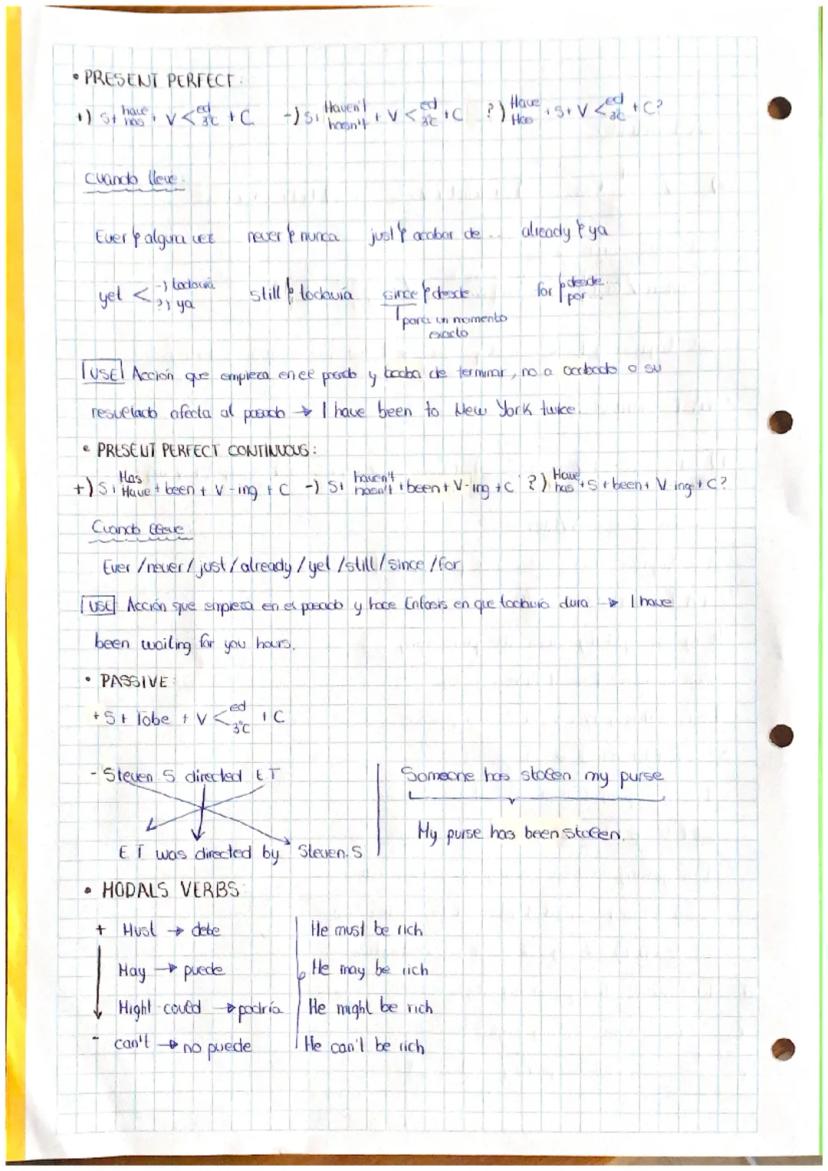 • PRESENT PERFECT:
+) S+ have/has + V < ed/3ªC + C -) S+ Haven't/hasn't + V < ed/3ªC + C ?) Have/Has + S + V < ed/3ªC + C?
Cuando lleve:
Ever → alguna vez never → nunca just → acabar de... already → ya
yet < -) todavía ?) ya still → todavía since → desde for → desde/por
para un momento
exacto
USE Acción que empieza en el pasado y acaba de terminar, no a acabado o su
resueltado afecta al pasado → I have been to New York twice.
• PRESENT PERFECT CONTINUOUS:
+) S+ Has/Have + been + V-ing + C -) S+ haven't/hasn't + been + V-ing + C ?) Have/has + S + been + V ing + C?
Cuando lleve
Ever / never / just / already / yet / still / since / for
USE Acción que empieza en el pasado y hace énfasis en que todavía dura → I have
been waiting for you hours.
• PASSIVE:
+ S + tobe + V < ed/3ªC + C
- Steven S directed ET
Someone has stolen my purse
ET was directed by Steven.S
My purse has been stolen.
• MODALS VERBS
+ Must → debe He must be rich
May → puede He may be rich
Might could → podría He might be rich
- can't → no puede He can't be rich